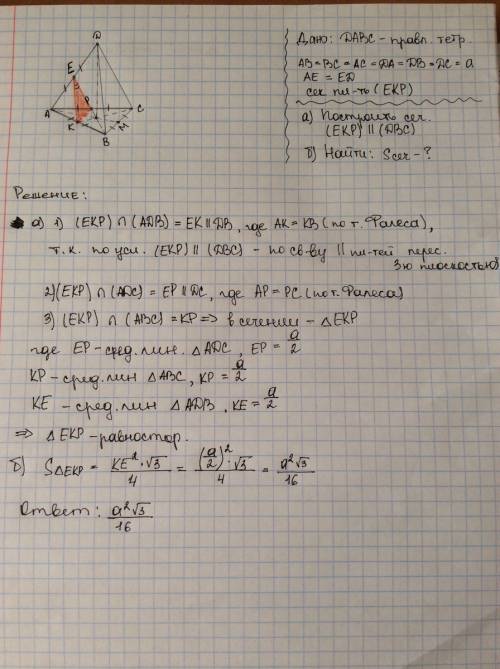 D
E
A
P
C
K
M
B
Дано: DABC - прав. тетр.
AB = BC = AC = DA = DB = DC = a
AE = ED
сек пл-ть (EKP)
а) Построить сеч.
(EKP) || (DBC)
б) Найти: Sсеч - ?
Решение:
а) 1) (EKP) ∩ (ADB) = EK || DB, где AK = KB (по т. Фалеса),
т.к. по усл. (EKP) || (DBC) - по св-ву || пл-тей перес.
3ю плоскостью)
2) (EKP) ∩ (ADC) = EP || DC, где AP = PC (по т. Фалеса)
3) (EKP) ∩ (ABC) = KP => в сечении - △EKP
где EP - сред. лин. △ADC, EP = a/2
KP - сред. лин △ABC, KP = a/2
KE - сред. лин △ADB, KE = a/2
=> △EKP - равностор.
б) S△EKP = KE²·√3/4 = (a/2)²·√3/4 = a²√3/16
Ответ: a²√3/16